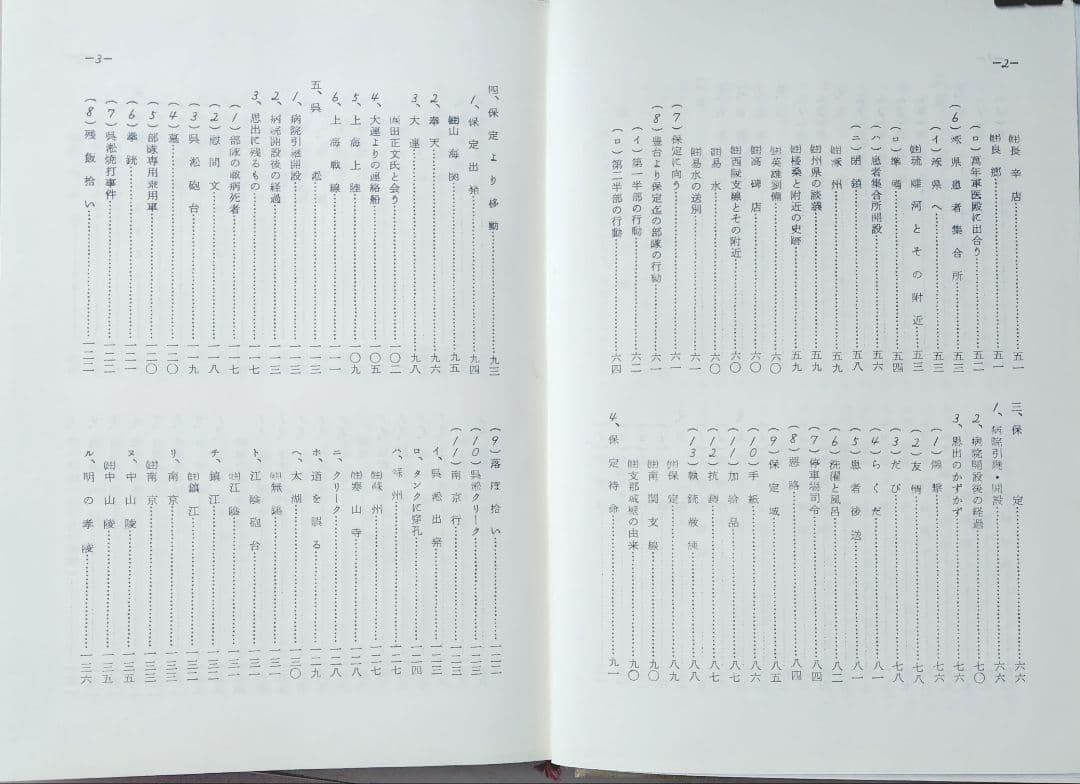 —2—
㊟長辛店……五一
㊟良郷……五一
(ロ)萬年軍医殿に出合う……五二
(6)涿県患者集合所……五三
(イ)涿県へ……五三
㊟琉璃河とその附近……五三
(ロ)準備……五四
(ハ)患者集合所開設……五六
(ニ)閉鎖……五八
㊟涿州……五九
㊟州県の談義……五九
㊟楼桑と附近の史跡……五九
㊟英雄劉備……六〇
㊟高碑店……六〇
㊟西陵支線とその附近……六〇
㊟易水……六〇
㊟易水の送別……六一
(7)保定に向う……六一
(8)豊台より保定迄の部隊の行動……六一
(イ)第一半部の行動……六二
(ロ)第二半部の行動……六四
三、保定……六六
1、病院引継・開設……六六
2、病院開設後の経過……七〇
3、思出のかずかず……七六
(1)懶祭……七六
(2)友情……七八
(3)だび……七八
(4)らくだ……八一
(5)患者後送……八一
(6)洗濯と風呂……八二
(7)停車場司令……八四
(8)悪路……八四
(9)保定城……八五
(10)手紙……八六
(11)加給品……八七
(12)抗錆……八七
(13)執銃教練……八八
㊟保定……八九
㊟南関支線……九〇
㊟支那城壁の由来……九〇
4、保定待命……九一
—3—
四、保定より移動……九三
1、保定出発……九四
㊟山海関……九五
2、奉天……九六
3、大連……九八
㈲田正文氏と会う……一〇二
4、大連よりの連絡船……一〇五
5、上海上陸……一〇九
6、上海戦線……一一一
五、呉淞……一一三
1、病院引継開設……一一三
2、病院開設後の経過……一一三
3、思出に残るもの……一一七
(1)部隊の戦病死者……一一七
(2)慰問文……一一八
(3)呉淞砲台……一一九
(4)墓……一二〇
(5)部隊専用乗用車……一二〇
(6)拳銃……一二一
(7)呉淞焼打事件……一二二
(8)残飯拾い……一二二
(9)落ぼ拾い……一二二
(10)呉淞クリーク……一二三
(11)南京行……一二三
イ、呉淞出発……一二三
ロ、タンクに穿孔……一二四
ハ、蘇州……一二七
㊟蘇州……一二七
㊟寒山寺……一二八
ニ、クリーク……一二八
ホ、道を誤る……一二九
ヘ、太湖……一三〇
㊟無錫……一三一
ト、江陰砲台……一三一
㊟江陰……一三一
チ、鎮江……一三二
㊟鎮江……一三二
リ、南京……一三三
㊟南京……一三三
ヌ、中山陵……一三五
㊟中山陵……一三五
ル、明の孝陵……一三六